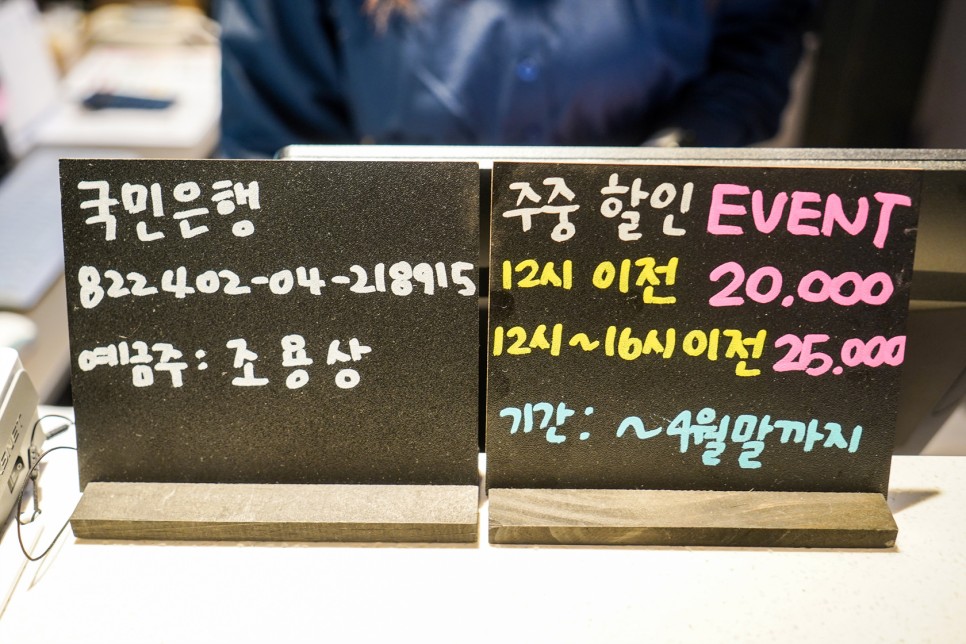 국민은행
822402-04-218915
예금주: 조용상
주중 할인 EVENT
12시 이전 20.000
12시~16시이전 25.000
기간: ~4월말까지